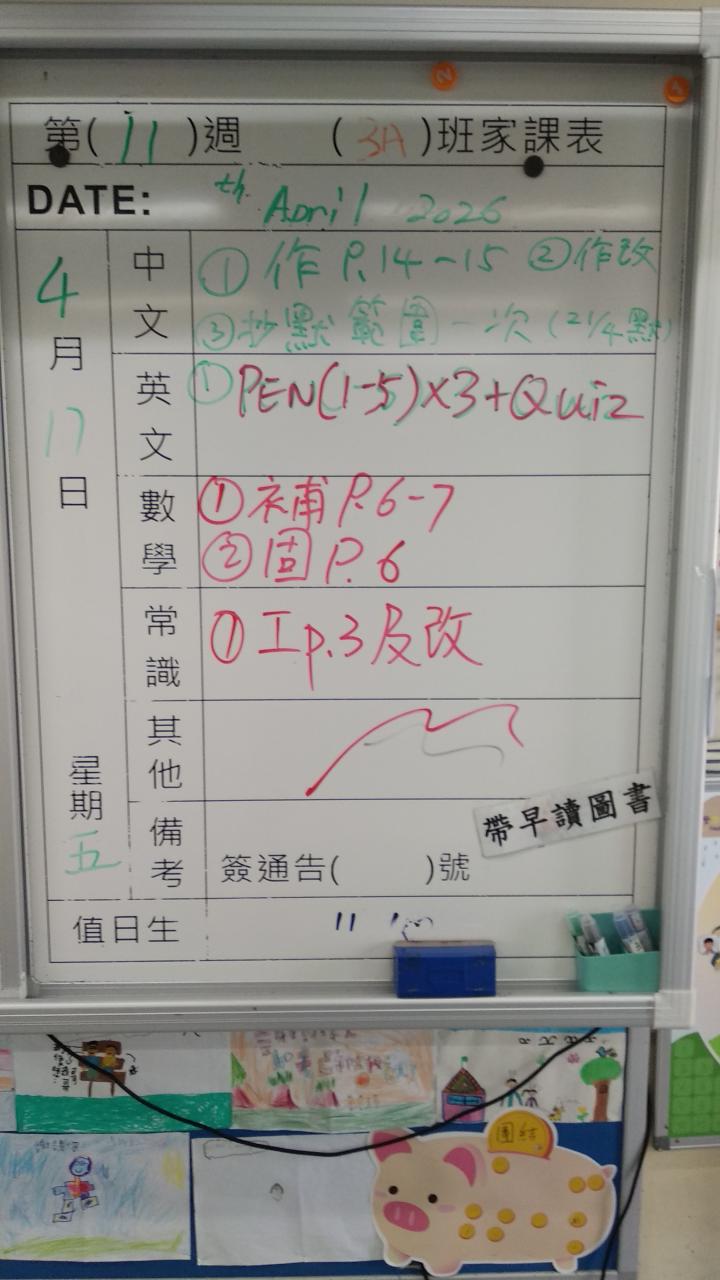 第( 11 )週 ( 3A )班家課表
DATE: th April 2026
4月17日 星期五
中文 ①作 P.14-15 ②作改
③抄默範圍一次(21/4默)
英文 ①PEN(1-5)×3+Quiz
數學 ①補 P.6-7
②固 P.6
常識 ①工p.3及改
其他
備考 簽通告( )號
帶早讀圖書
值日生 11
團結